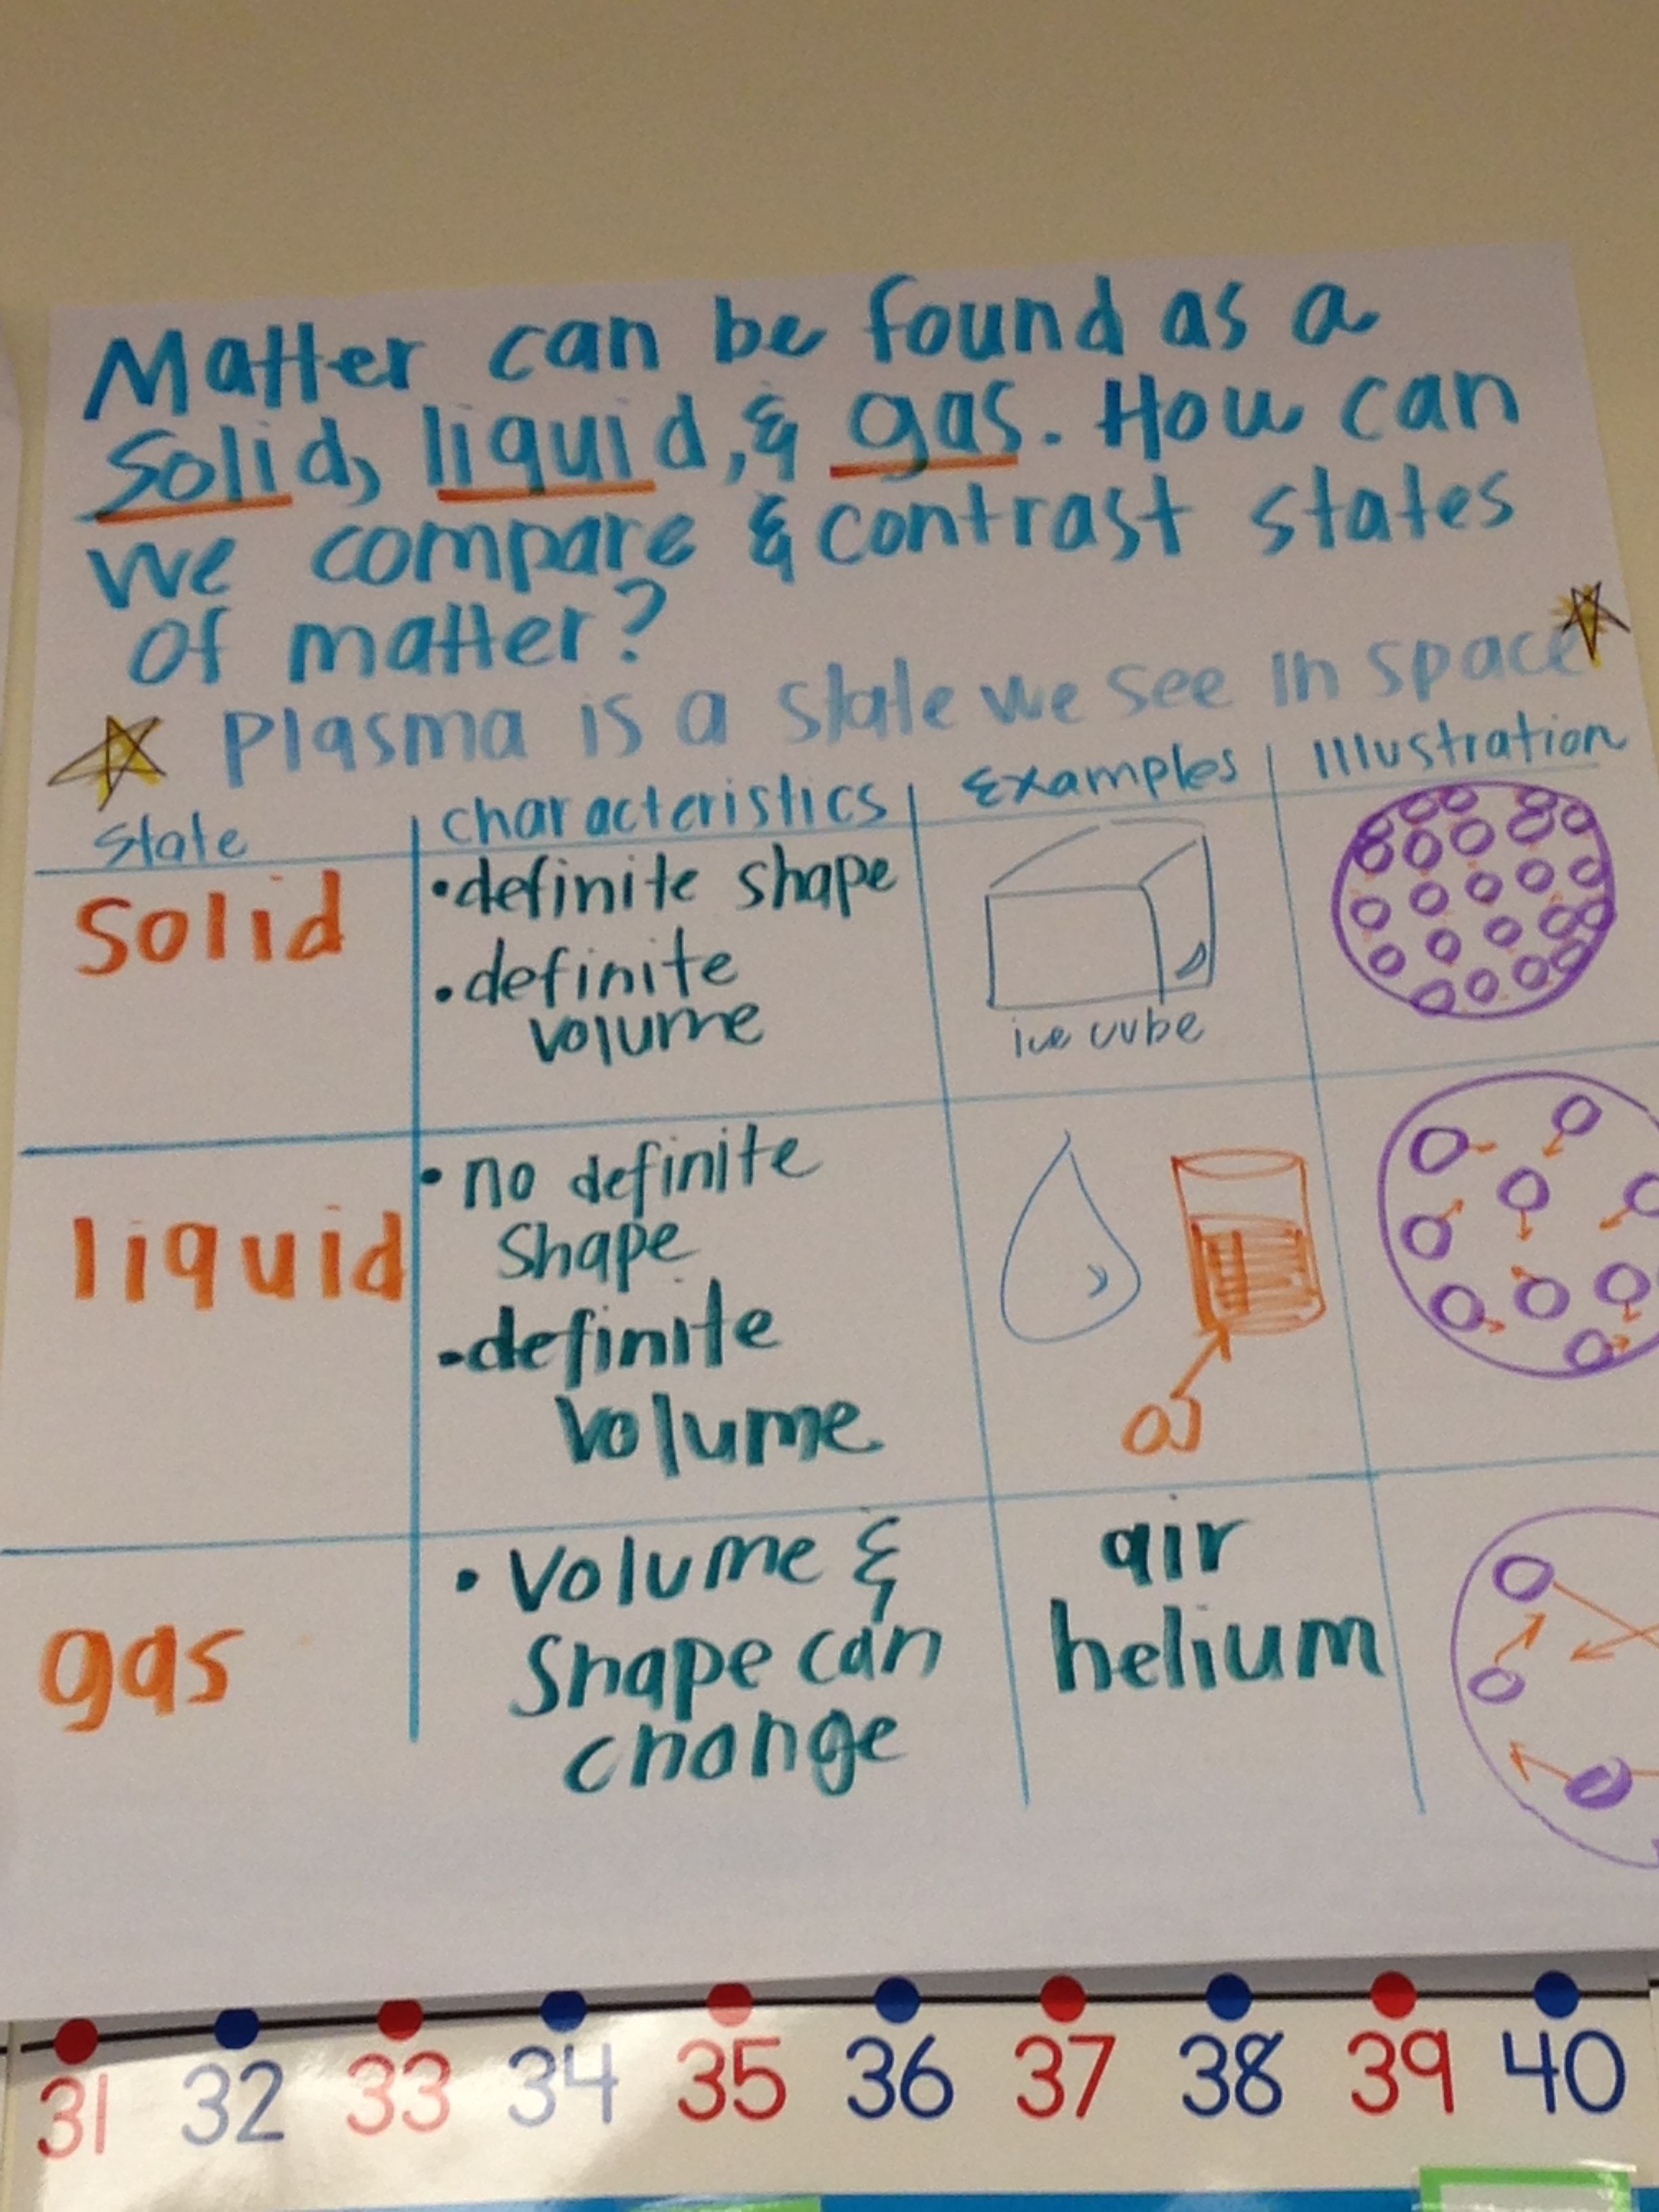 Matter can be found as a
solid, liquid, & gas. How can
we compare & contrast states
of matter?
Plasma is a state we see in space
State characteristics Examples Illustration
Solid
• definite shape
• definite
volume
ice cube
liquid
• no definite
shape
• definite
volume
OJ
gas
• Volume &
Shape can
change
air
helium
31 32 33 34 35 36 37 38 39 40